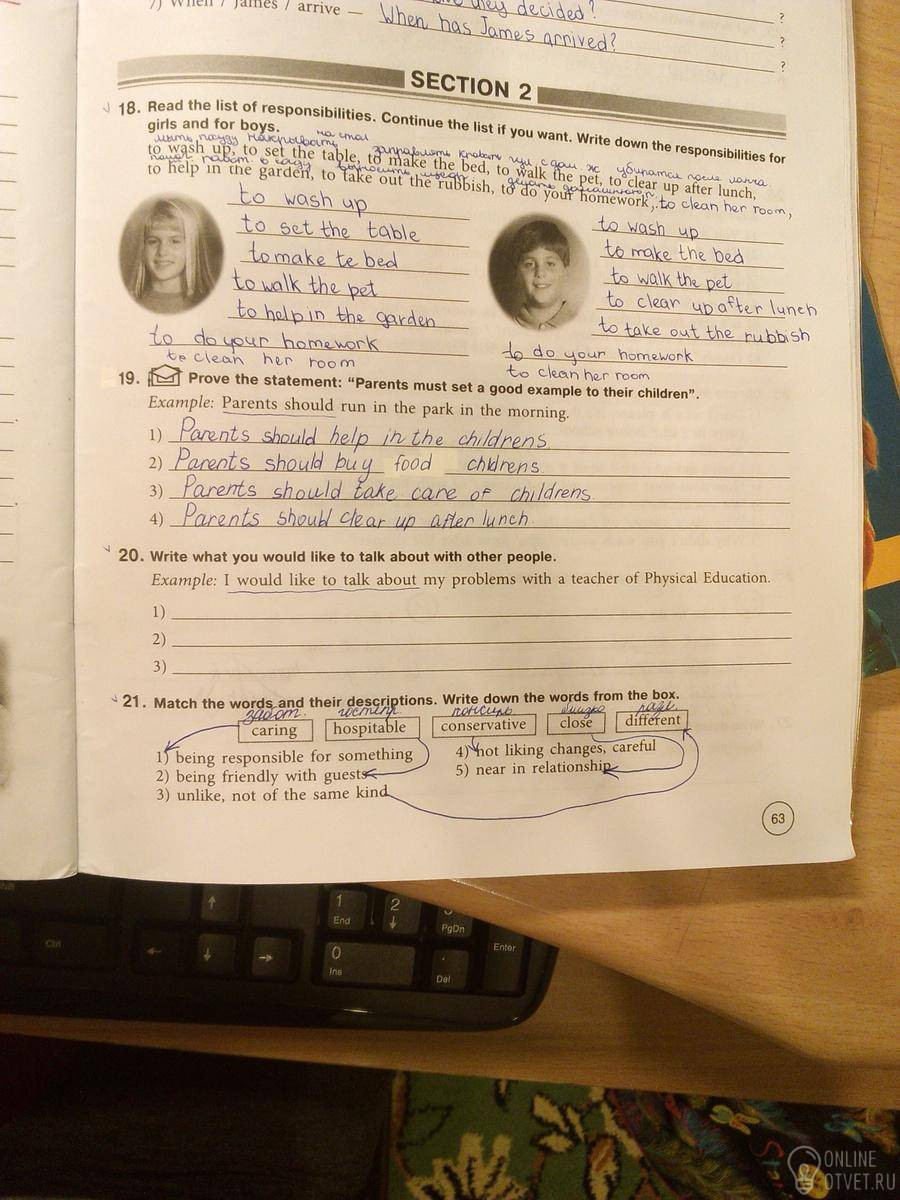 they decided? ?
7) When / James / arrive — When has James arrived? ?
?
SECTION 2
18. Read the list of responsibilities. Continue the list if you want. Write down the responsibilities for
girls and for boys.
на стол
мыть посуду накрывать заправлять кровать убираться после ланча
to wash up, to set the table, to make the bed, to walk the pet, to clear up after lunch,
to help in the garden, to take out the rubbish, to do your homework, to clean her room,
to wash up
to set the table
to make te bed
to walk the pet
to help in the garden
to do your homework
to clean her room
to wash up
to make the bed
to walk the pet
to clear up after lunch
to take out the rubbish
to do your homework
to clean her room
19. Prove the statement: “Parents must set a good example to their children”.
Example: Parents should run in the park in the morning.
1) Parents should help in the childrens
2) Parents should buy food childrens
3) Parents should take care of childrens.
4) Parents should clear up after lunch.
20. Write what you would like to talk about with other people.
Example: I would like to talk about my problems with a teacher of Physical Education.
1)
2)
3)
21. Match the words and their descriptions. Write down the words from the box.
caring hospitable conservative close different
1) being responsible for something
2) being friendly with guests
3) unlike, not of the same kind
4) not liking changes, careful
5) near in relationship
63
Ctrl
1 End
2
PgDn
Enter
0 Ins
. Del
ONLINE
OTVET.RU